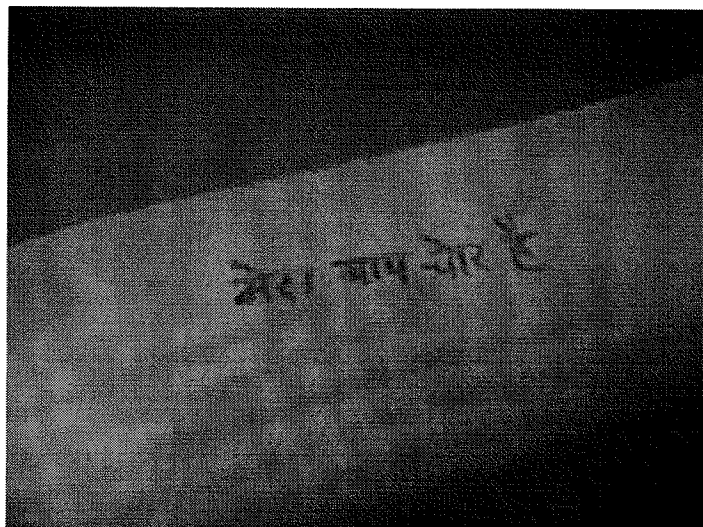 मेरा बाप चोर है